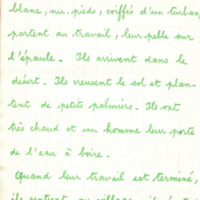 blanc, nu-pieds, coiffés d'un turban,
partent au travail, leur pelle sur
l'épaule. Ils arrivent dans le
désert. Ils creusent le sol et plan-
tent de petits palmiers. Ils ont
très chaud et un homme leur porte
de l'eau à boire.
Quand leur travail est terminé,
ils rentrent au village